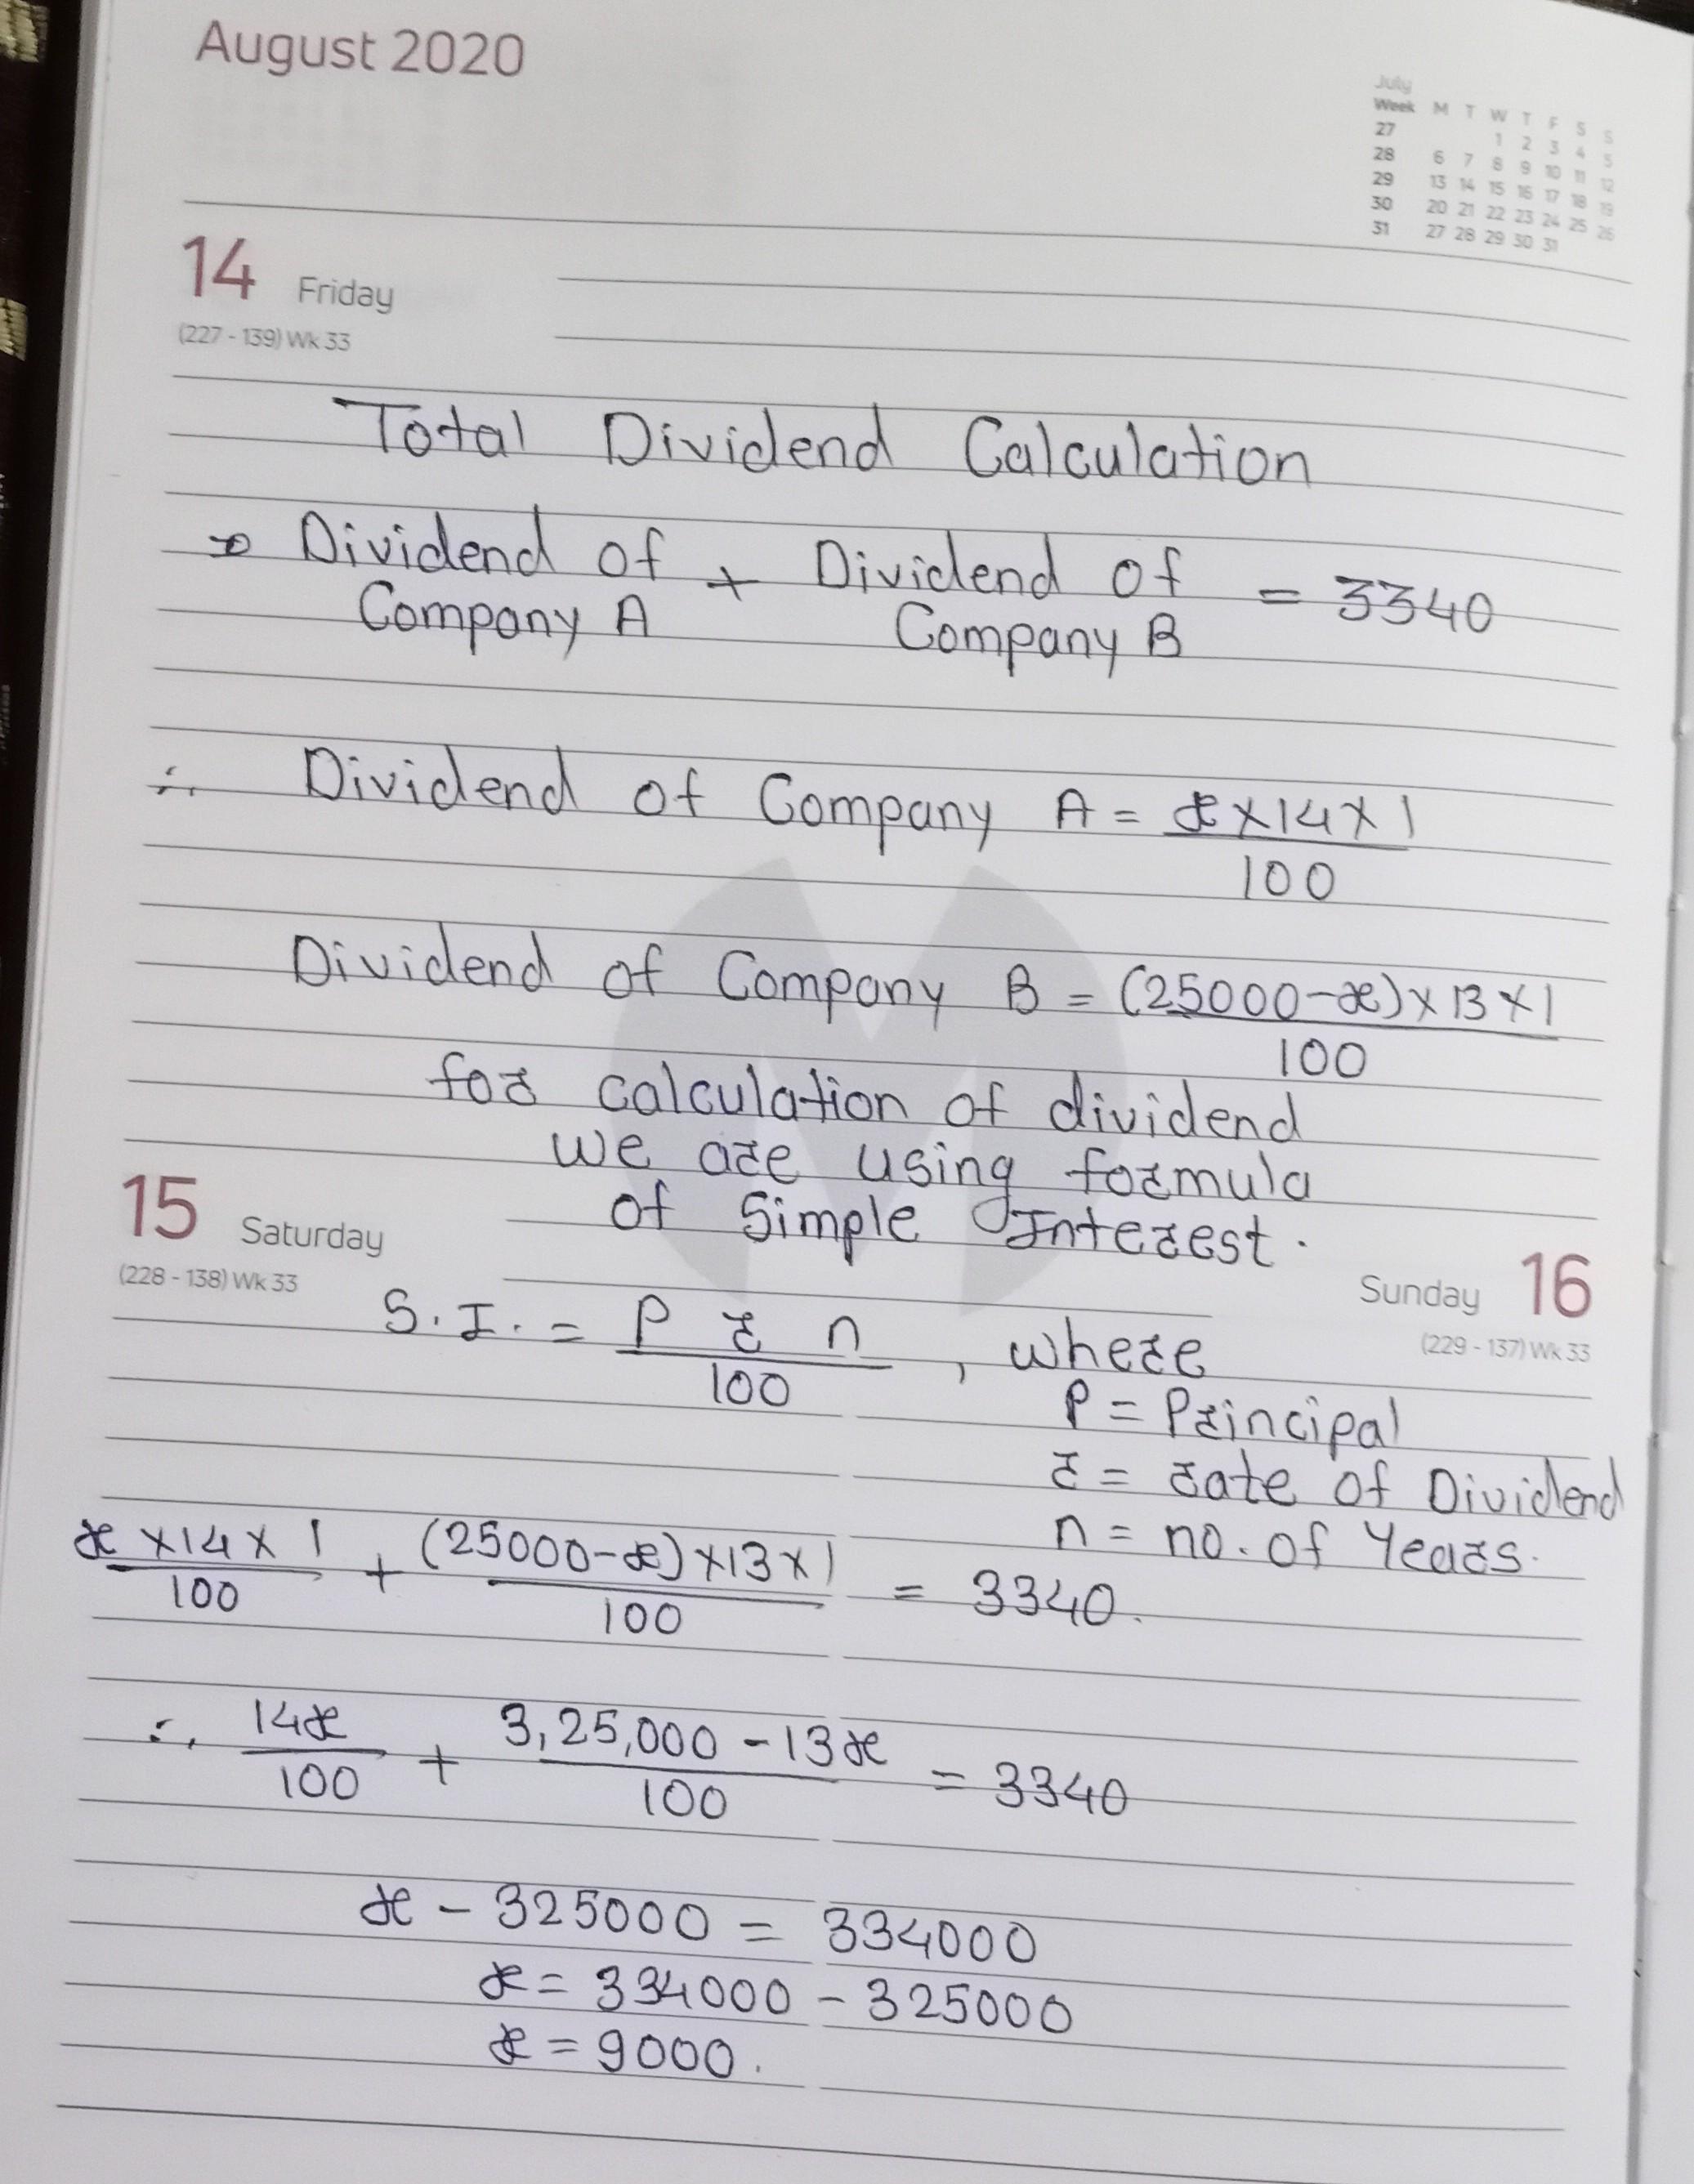 August 2020
July
Week M T W T F S S
27 1 2 3 4 5
28 6 7 8 9 10 11 12
29 13 14 15 16 17 18 19
30 20 21 22 23 24 25 26
31 27 28 29 30 31
14 Friday
(227 - 139) Wk 33
Total Dividend Calculation
Dividend of + Dividend of = 3340
Company A Company B
∴ Dividend of Company A = x × 14 × 1
100
Dividend of Company B = (25000 - x) × 13 × 1
100
for calculation of dividend
we are using formula
of Simple Interest.
15 Saturday
(228 - 138) Wk 33
Sunday 16
(229 - 137) Wk 33
S.I. = P r n , where
100
P = Principal
r = rate of Dividend
n = no. of Years.
x × 14 × 1 + (25000 - x) × 13 × 1 = 3340.
100 100
∴ 14x + 3,25,000 - 13x = 3340
100 100
x - 325000 = 334000
x = 334000 - 325000
x = 9000.